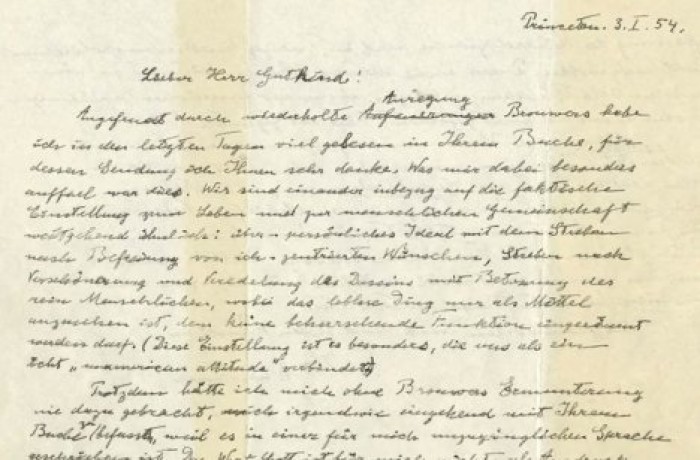 Princeton. 3. I. 54.
Lieber Herr Gutkind!
Anregung
Angefeuert durch wiederholte Brouwers habe
ich in den letzten Tagen viel gelesen in Ihrem Buche, für
dessen Sendung ich Ihnen sehr danke. Was mir dabei besonders
auffiel war dies. Wir sind einander inbezug auf die faktische
Einstellung zum Leben und zur menschlichen Gemeinschaft
weitgehend ähnlich: über-persönliches Ideal mit dem Streben
nach Befreiung von ich-zentrierten Wünschen, Streben nach
Verschönerung und Veredelung des Daseins mit Betonung des
rein Menschlichen, wobei das leblose Ding nur als Mittel
anzusehen ist, dem keine beherrschende Funktion eingeräumt
werden darf. (Diese Einstellung ist es besonders, die uns als ein
echt „unamerican attitude" verbindet)
Trotzdem hätte ich mich ohne Brouwers Ermunterung
nie dazu gebracht, mich irgendwie eingehend mit Ihrem
Buche befasst, weil es in einer für mich unzugänglichen Sprache
geschrieben ist. Das Wort Gott ist für mich nichts als